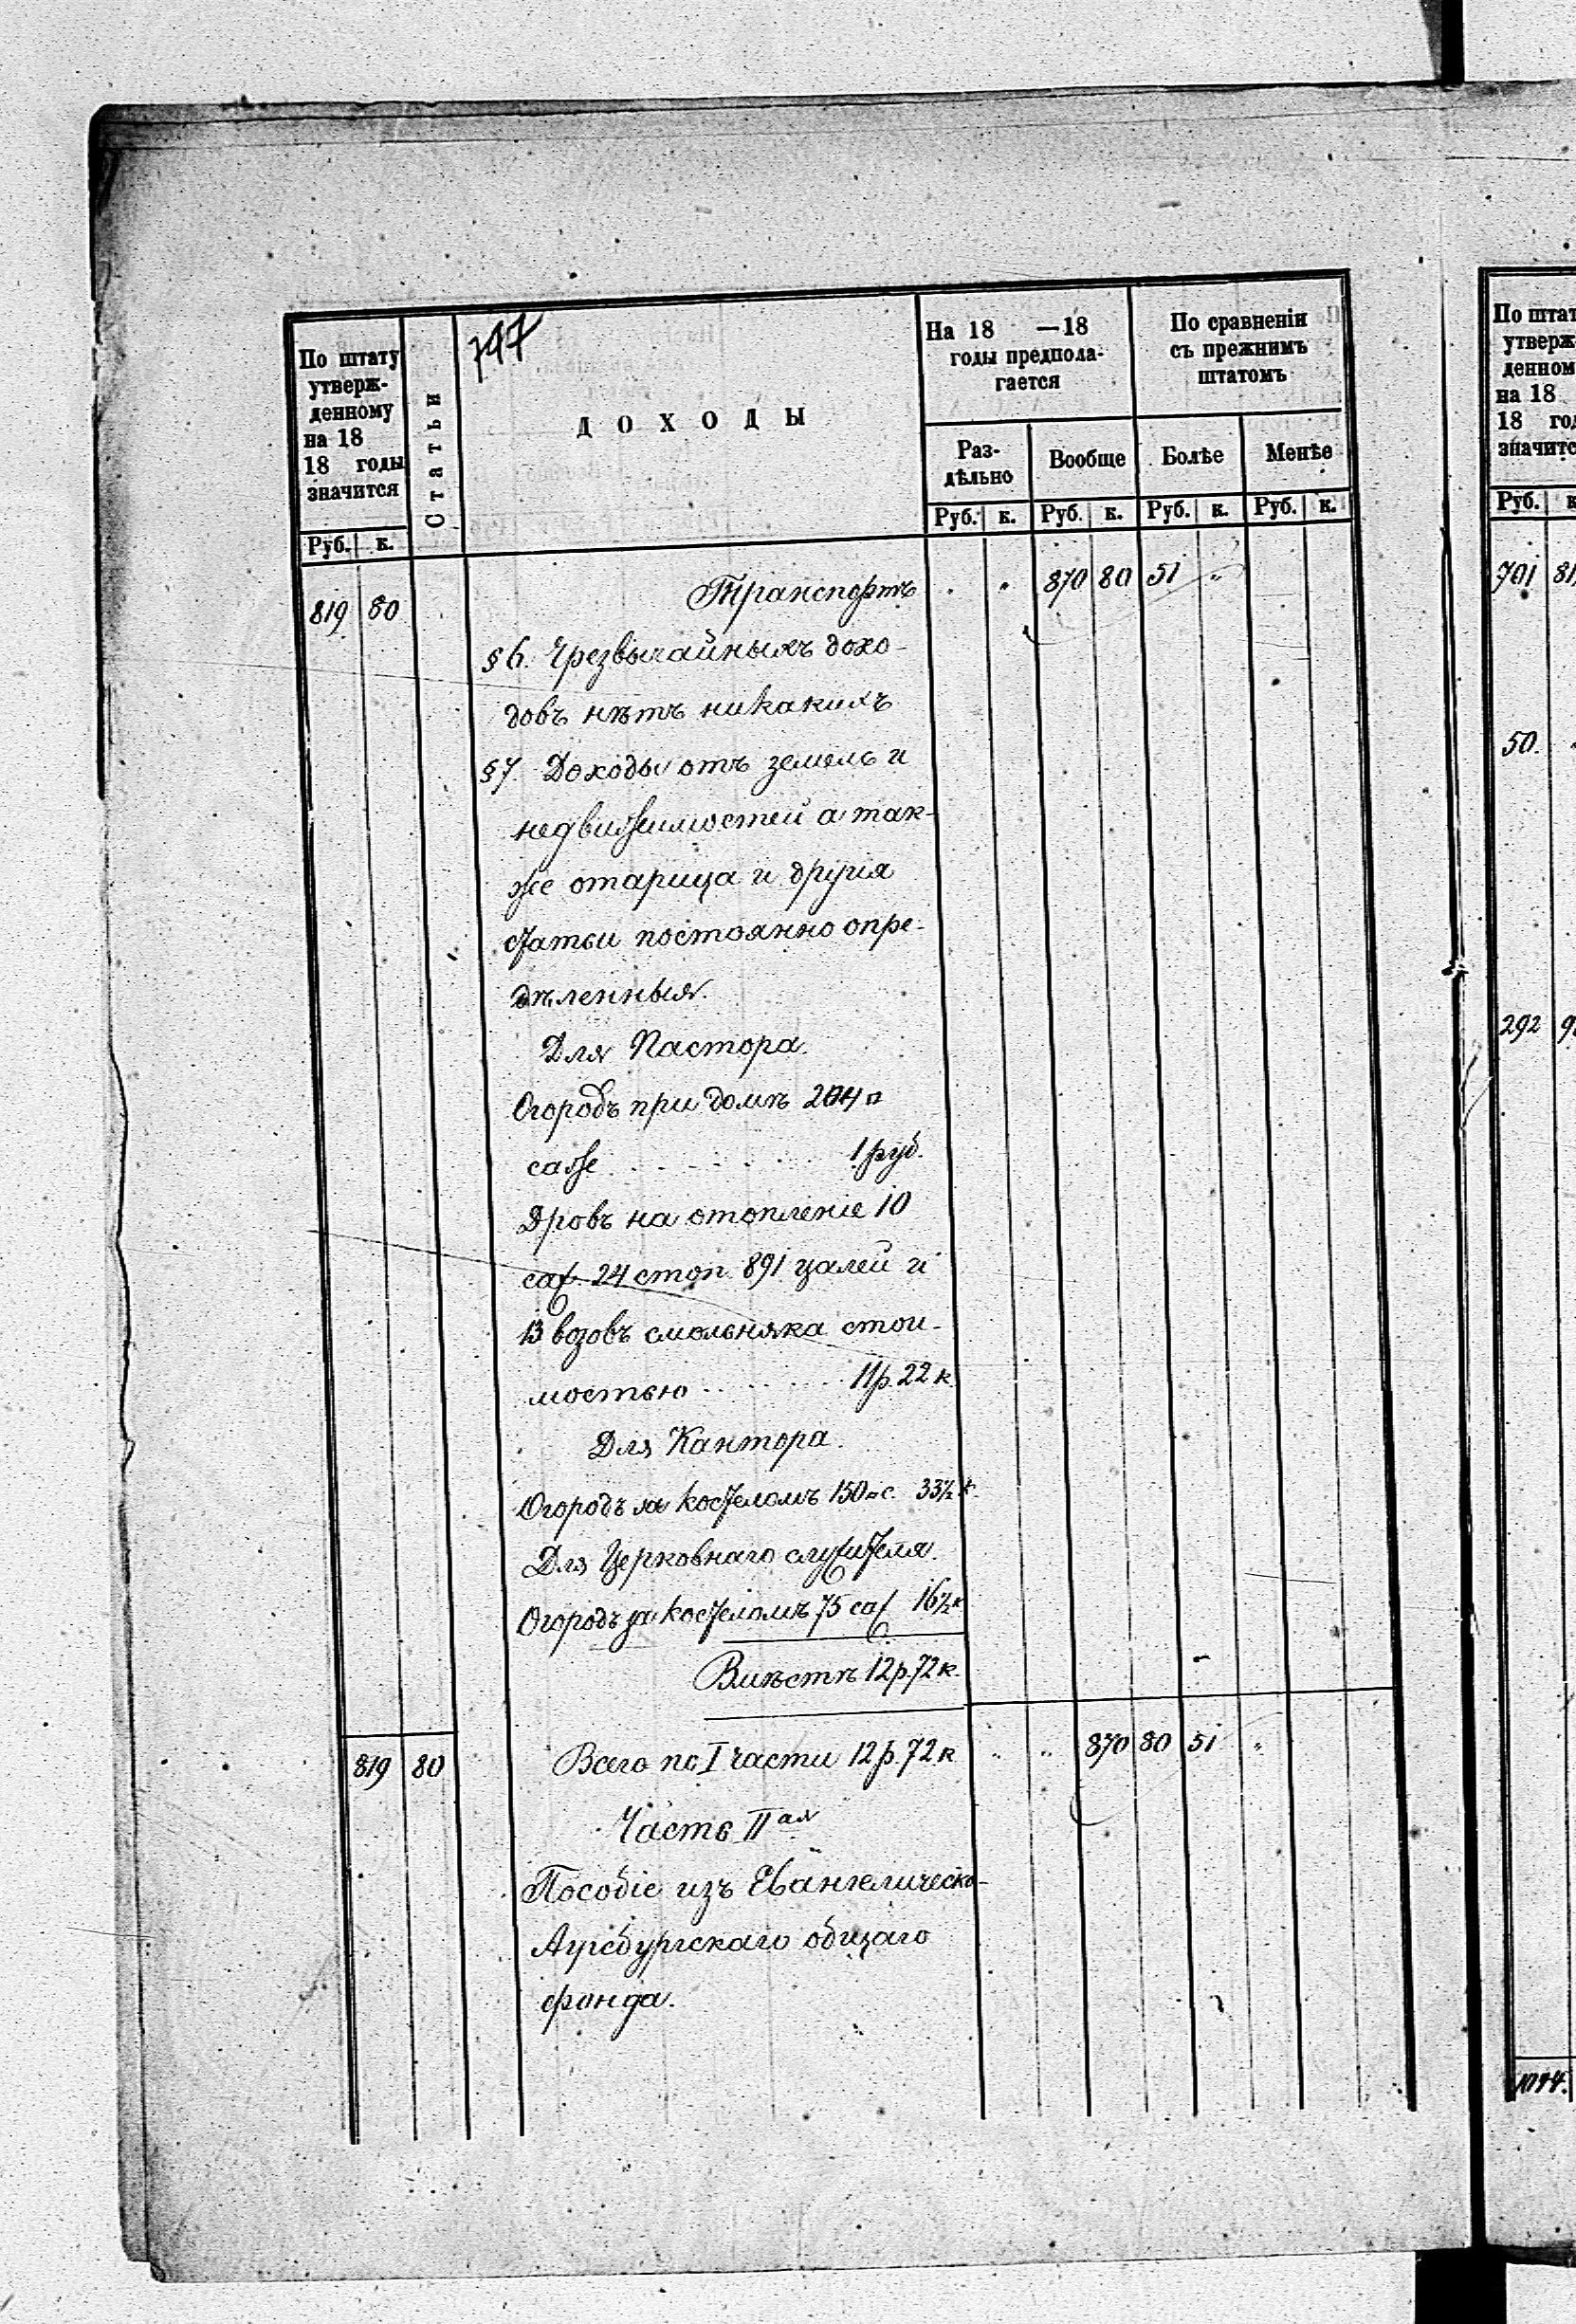 747
По штату
утверж-
денному
на 18
18 годы
значится
Руб. к.
Статьи
ДОХОДЫ
На 18 —18
годы предпола-
гается
Раз-
дѣльно
Вообще
Руб. к. Руб. к.
По сравненіи
съ прежнимъ
штатомъ
Болѣе Менѣе
Руб. к. Руб. к.
819 80 Транспортъ . " 870 80 51 "
§6. Чрезвычайныхъ дохо-
довъ нѣтъ никакихъ
§7 Доходы отъ земель и
недвижимостей а так-
же отарица и другія
статьи постоянно опре-
дѣленныя.
Для Пастора.
Огородъ при домѣ 204 □
саж. . . . . . 1 руб.
Дровъ на отопленіе 10
саж. 24 стоп. 891 цалей и
13 возовъ смольняка стои-
мостью . . . . . 11 р. 22 к.
Для Кантора.
Огородъ за костеломъ 150 □ с. 33½ к.
Для Церковнаго служителя.
Огородъ за костеломъ 75 саж 16½ к
Вмѣстѣ 12 р. 72 к.
819 80 Всего по I части 12 р. 72 к " " 870 80 51 "
Часть IIая
Пособіе изъ Евангелическо-
Аугсбургскаго общаго
фонда.
По штат
утверж-
денном
на 18
18 год
значитс
Руб. к
701 81
50. "
292 9